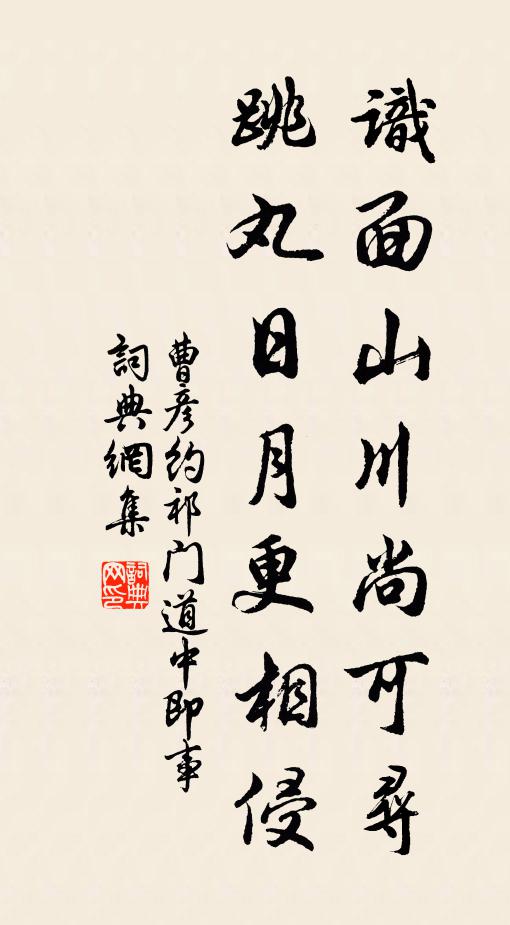 識面山川尚可尋
跳丸日月更相侵
曹彦約祁门道中即事
詞典網集
詞典网印